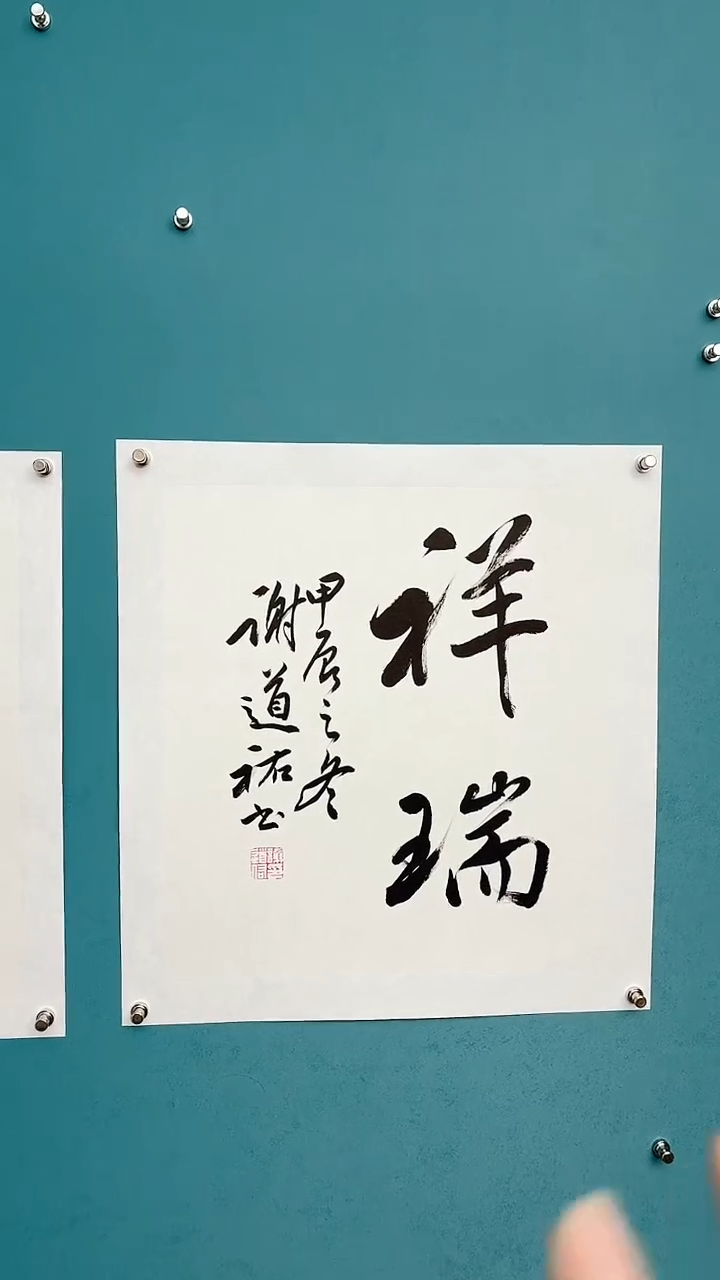 祥瑞
甲辰之冬
谢道祐书